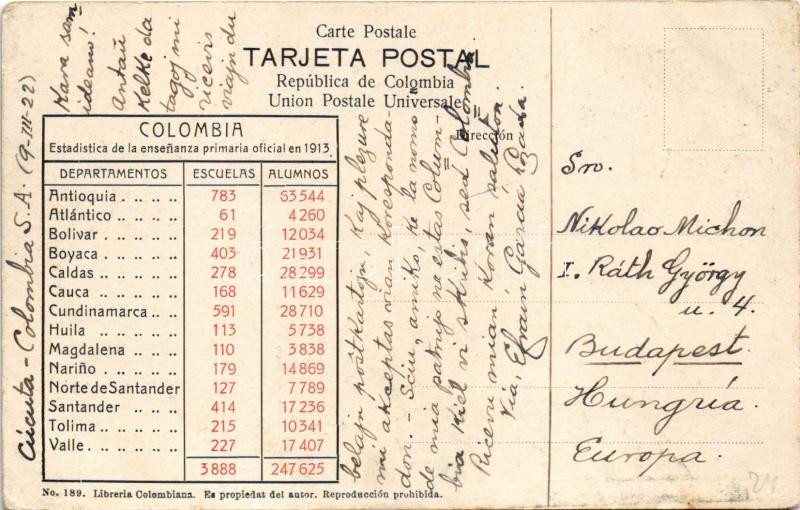 Carte Postale
TARJETA POSTAL
República de Colombia
Union Postale Universale
Dirección
COLOMBIA
Estadistica de la enseñanza primaria oficial en 1913.
DEPARTAMENTOS ESCUELAS ALUMNOS
Antioquia . . . . . 783 63544
Atlántico . . . . . 61 4260
Bolivar . . . . . 219 12034
Boyaca . . . . . 403 21931
Caldas . . . . . 278 28299
Cauca . . . . . 168 11629
Cundinamarca . . 591 28710
Huila . . . . . 113 5738
Magdalena . . . . 110 3838
Nariño . . . . . 179 14869
Norte de Santander 127 7789
Santander . . . . 414 17236
Tolima . . . . . 215 10341
Valle . . . . . 227 17407
3888 247625
No. 189. Libreria Colombiana. Es propiedat del autor. Reproducción prohibida.
Cúcuta - Colombia S.A. (9-III-22)
Kara sam=
ideano!
Antaŭ
kelke da
tagoj mi
ricevis
viajn du
belajn poŝtkartojn, kaj plezure
mi akceptas vian koresponda-
don. - Sciu, amiko, ke la nomo
de mia patrujo ne estas Colum-
bia kiel vi skribis, sed Colombia.
Ricevu mian koran saluton.
Via, Efraín García Lozada.
Sro.
Nikolao Michon
I. Ráth György
u. 4.
Budapest.
Hungría.
Europa.